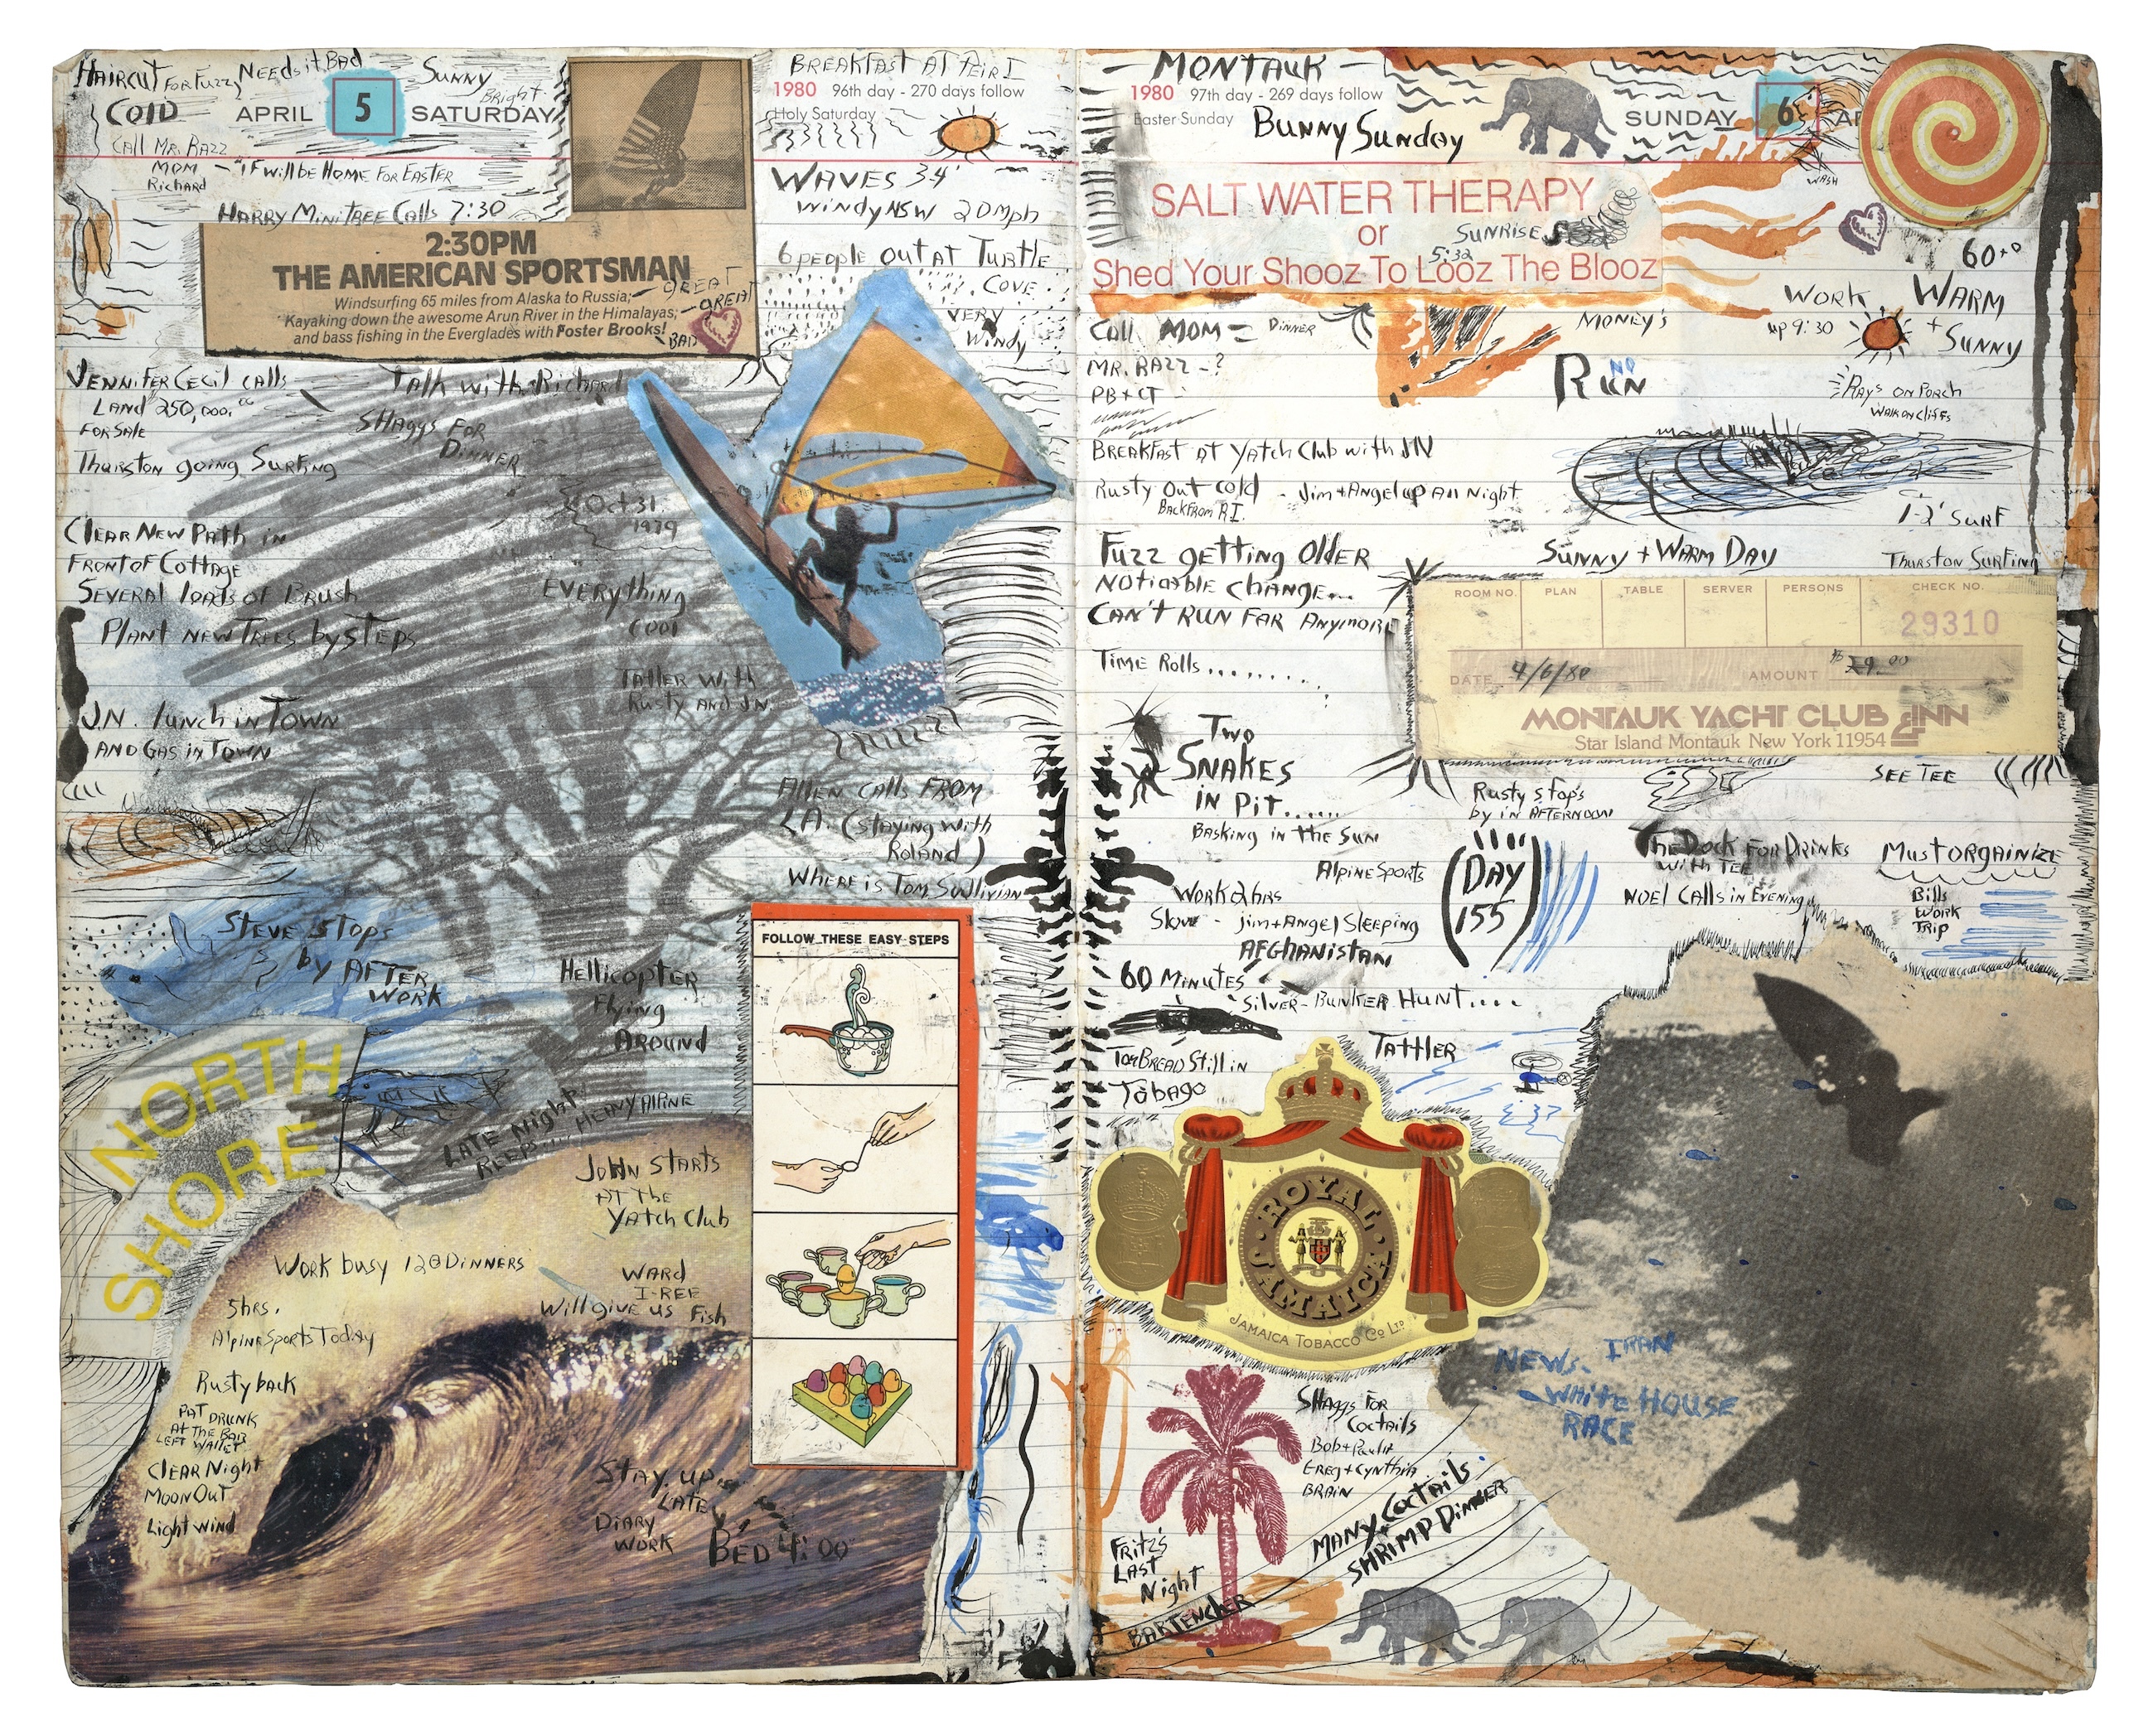 HAIRCUT FOR FUZZ, NEEDS it BAD
SUNNY
Bright
COLD
APRIL 5 SATURDAY
Call MR. RAZZ
MOM
Richard
- "iF will be HOME FOR EASTER
HARRY MINITREE Calls 7:30
2:30PM
THE AMERICAN SPORTSMAN
Windsurfing 65 miles from Alaska to Russia;
Kayaking down the awesome Arun River in the Himalayas;
and bass fishing in the Everglades with Foster Brooks!
- GREAT
- GREAT
- BAD
BREAKFAST AT PEIR I
1980 96th day - 270 days follow
Holy Saturday
WAVES 3-4'
WINDY NSW 20mph
6 people out AT TURTLE
COVE
VERY
Windy
JENNIFER CECIL calls
LAND 250,000.00
FOR SALE
Talk with Richard
SHAGGS FOR
DINNER
Thurston going Surfing
Oct 31
1979
CLEAR NEW PATH in
FRONT OF COTTAGE
SEVERAL loads of Brush
Plant NEW TREES by STEPS
EVERYThing
COOl
TATTLER WITH
Rusty AND J.N.
J.N. lunch in TOWN
AND GAS in TOWN
AllEN CALLS FROM
LA. (STAYING WITH
Roland)
WHERE is TOM SULLIVIAN
STEVE STOPS
by AFTER
WORK
HEllICOPTER
Flying
AROUND
NORTH
SHORE
LATE Night
FOLLOW THESE EASY STEPS
JOHN STARTS
AT The
YATCH Club
WORK busy 120 DINNERS
WARD
Will give us Fish
5 hrs.
ALPINE SPORTS TODAY
Rusty back
PAT DRUNK
AT THE BAR
LEFT WALLET
CLEAR Night
MOON OUT
Light wind
STAY UP
LATE
DIARY
WORK
BED 4:00
- MONTAUK -
1980 97th day - 269 days follow
Easter Sunday
BUNNY SUNDAY
SUNDAY 6
WASH
SALT WATER THERAPY
or
SUNRISE
5:32
Shed Your Shooz To Looz The Blooz
60+°
WARM
+ SUNNY
WORK
up 9:30
MONEY'S
Call MOM = DINNER
MR. RAZZ - ?
PB + CT -
NO
RUN
RAYS ON PORCH
WALK ON CLIFFS
BREAKFAST AT YATCH Club with JN
Rusty OUT COLD - Jim + Angel up All Night
BACK FROM R.I.
1-2' SURF
FUZZ gETTING OLDER
NOTICABLE CHANGE...
CAN'T RUN FAR ANYMORE
SUNNY + WARM DAY
THURSTON SURFING
TIME Rolls........
ROOM NO. PLAN TABLE SERVER PERSONS CHECK NO.
29310
DATE 4/6/80 AMOUNT
MONTAUK YACHT CLUB & INN
Star Island Montauk New York 11954
TWO
SNAKES
IN PIT......
BASKING IN THE SUN
Rusty stops
by in AFTERNOON
SEE TEE
ALPINE SPORTS
(DAY
155)
THE DOCK FOR DRINKS
WITH TEE
NOEL CALLS in EVENING
MUST ORGAINIZE
Bills
WORK
TRIP
WORK 2 hrs
Slow - Jim + Angel Sleeping
AFGHANISTAN
60 MINUTES
SILVER - BUNKER HUNT....
TATTLER
STILL in
TOBAGO
ROYAL
JAMAICA
JAMAICA TOBACCO Co LTD.
NEWS. IRAN
- WHITE HOUSE
RACE
SHAGGS FOR
COCTAILS
GREG + CYNTHIA
BRAIN
MANY COCTAILS
SHRIMP DINNER
FRITZ'S
LAST
Night
BARTENDER